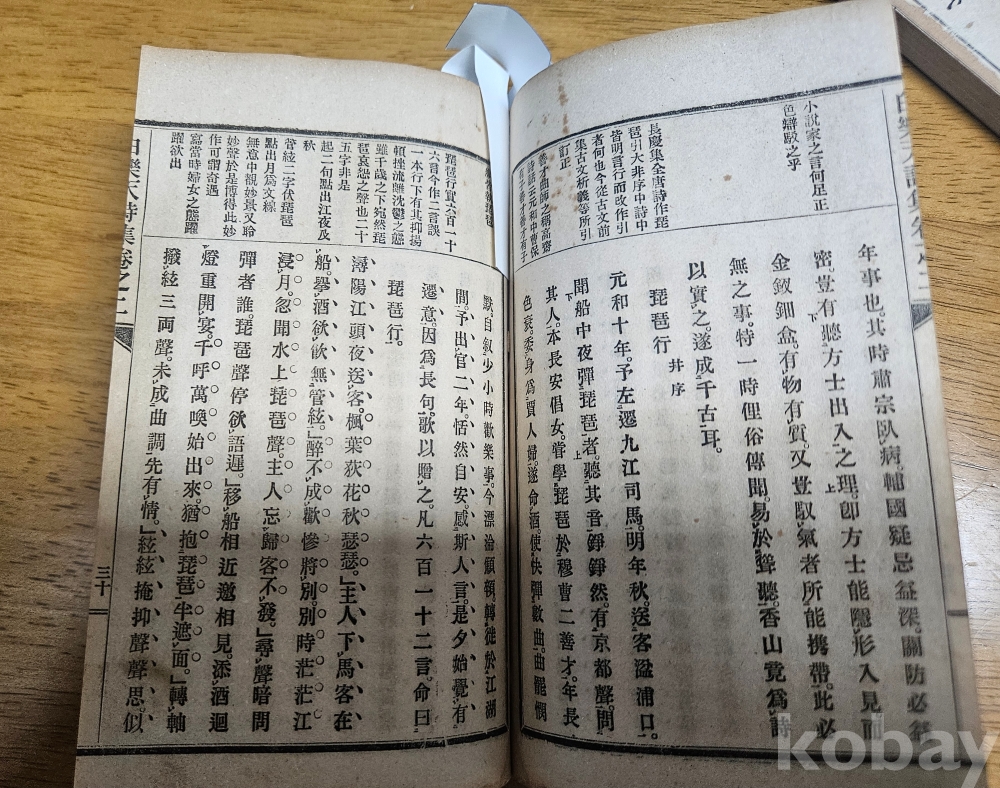 小說家之言何足正
色辯駁之乎
長慶集全唐詩作琵
琶引大非序中詩中
皆明言行而改作引
者何也今從古文前
集古文析義等所引
訂正
善才曲師之稱高齋
詩話云元和中曹保
有子善才善才有子
年事也。其時肅宗臥病。輔國疑忌益深。關防必
密。豈有聽方士出入之理。卽方士能隱形入見而
金釵鈿盒。有物有質。又豈馭氣者所能携帶。此必
無之事。特一時俚俗傳聞。易於聳聽。香山竟爲詩
以實之。遂成千古耳。
琵琶行 幷序
元和十年。予左遷九江司馬。明年秋。送客湓浦口。
聞船中夜彈琵琶者。聽其音錚錚然。有京都聲。問
其人。本長安倡女。嘗學琵琶於穆曹二善才。年長
色衰。委身爲賈人婦。遂命酒。使快彈數曲。曲罷憫
琵琶行實六百一十
六言今作二言誤
一本行下有其抑揚
頓挫流離沈鬱之態
雖千歲之下宛然琵
琶哀怨之聲也二十
五字非是
起二句點出江夜及
秋
管絃二字伏琵琶
點出月爲文線
無意中觀妙景又聆
妙聲於是博得此妙
作可謂奇遇
寫當時婦女之態躍
躍欲出
默。自叙少小時歡樂事。今漂淪顦顇。轉徙於江湖
間。予出官二年。恬然自安。感斯人言。是夕始覺有
遷意。因爲長句。歌以贈之。凡六百一十二言。命曰
琵琶行。
潯陽江頭夜送客。楓葉荻花秋瑟瑟。主人下馬客在
船。擧酒欲飮無管絃。醉不成歡慘將別。別時茫茫江
浸月。忽聞水上琵琶聲。主人忘歸客不發。尋聲暗問
彈者誰。琵琶聲停欲語遲。移船相近邀相見。添酒迴
燈重開宴。千呼萬喚始出來。猶抱琵琶半遮面。轉軸
撥絃三兩聲。未成曲調先有情。絃絃掩抑聲聲思。似
白樂天詩集卷之二
三十
kobay